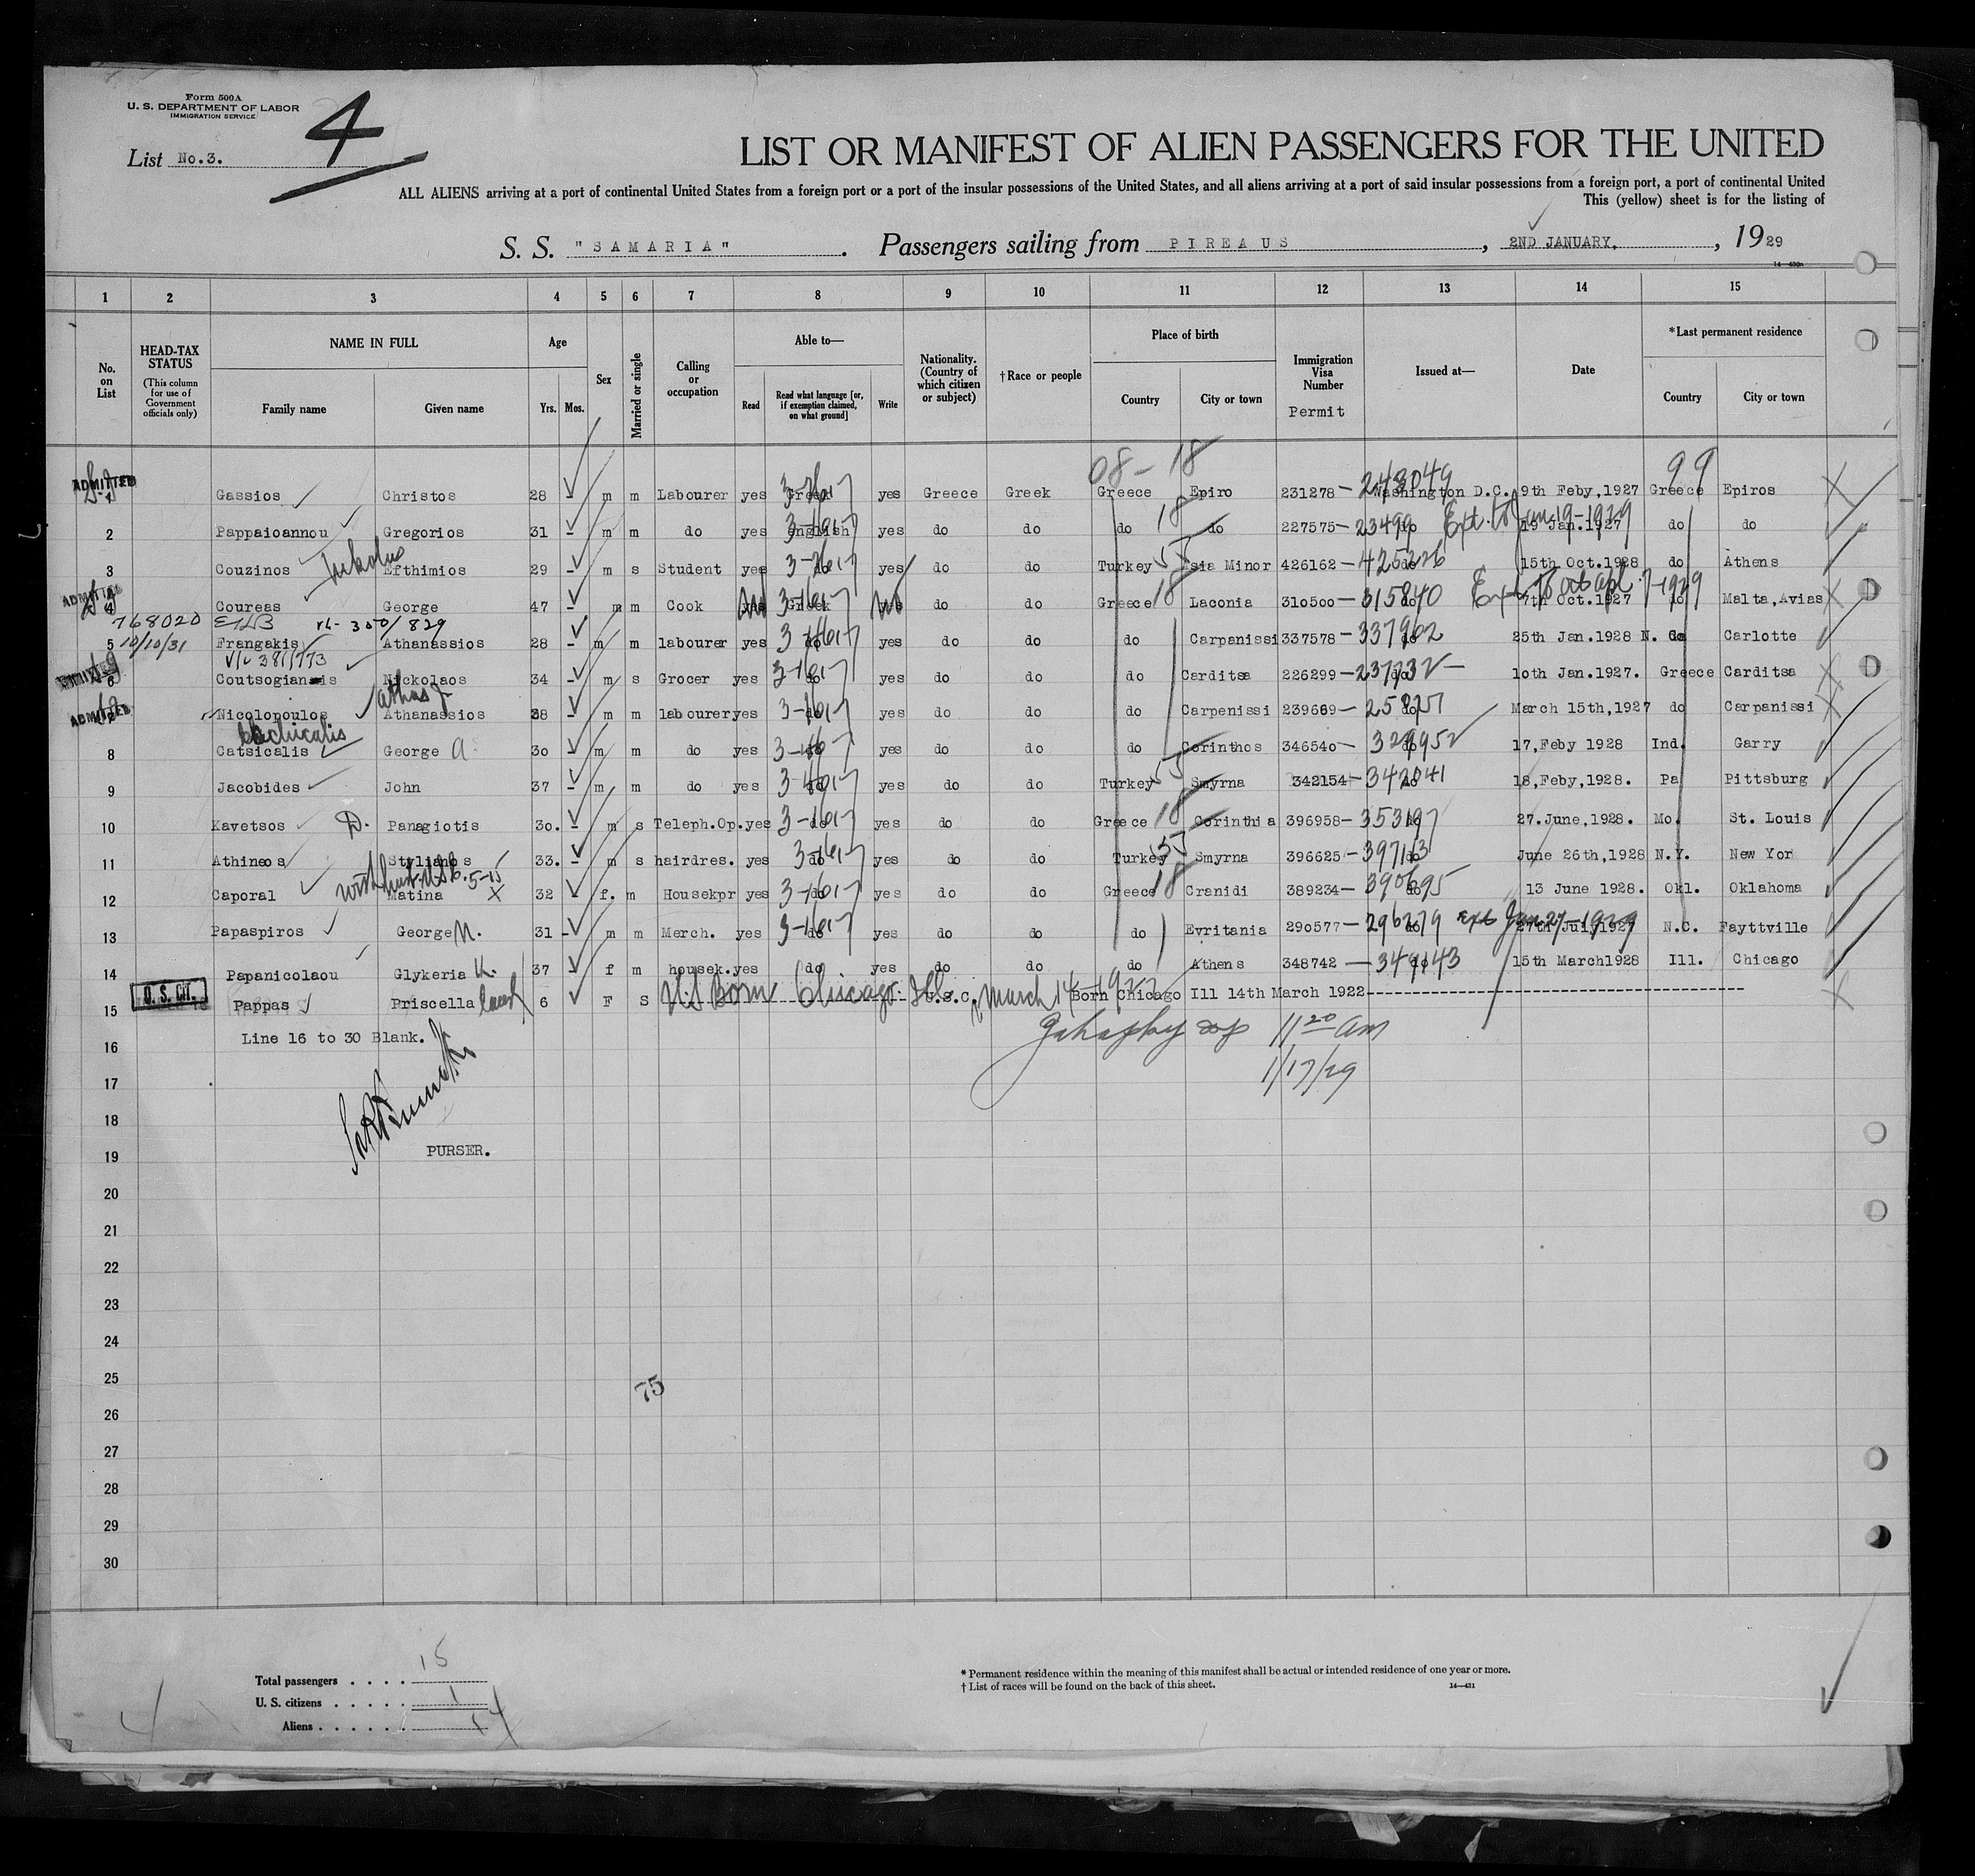 Form 500A
U. S. DEPARTMENT OF LABOR
IMMIGRATION SERVICE
4
List No.3.
LIST OR MANIFEST OF ALIEN PASSENGERS FOR THE UNITED
ALL ALIENS arriving at a port of continental United States from a foreign port or a port of the insular possessions of the United States, and all aliens arriving at a port of said insular possessions from a foreign port, a port of continental United
This (yellow) sheet is for the listing of
S. S. "SAMARIA". Passengers sailing from PIREAUS, 2ND JANUARY, 1929
1 2 3 4 5 6 7 8 9 10 11 12 13 14 15
No. on List
HEAD-TAX STATUS (This column for use of Government officials only)
NAME IN FULL
Family name Given name
Age
Yrs. Mos.
Sex
Married or single
Calling or occupation
Able to—
Read Read what language [or, if exemption claimed, on what ground] Write
Nationality. (Country of which citizen or subject)
†Race or people
Place of birth
Country City or town
Immigration Visa Number
Permit
Issued at—
Date
*Last permanent residence
Country City or town
08- 18 248049 99
ADMITTED 1 Gassios Christos 28 - m m Labourer yes Greek yes Greece Greek Greece Epiro 231278 Washington D.C. 9th Feby,1927 Greece Epiros
2 Pappaioannou Gregorios 31 - m m do yes english yes do do do 18 do 227575-23499 do 19 Jan.1927 do do
3 Couzinos Efthimios 29 - m s Student yes do yes do do Turkey 55 Asia Minor 426162-425226 do 15th Oct.1928 do Athens
ADMITTED 4 Coureas George 47 - m m Cook yes Greek yes do do Greece 18 Laconia 310500-315840 do 7th Oct.1927 do Malta,Avias
768020
5 10/10/31 Frangakis Athanassios 28 - m m labourer yes do yes do do do Carpanissi 337578-337902 do 25th Jan.1928 N. Ca Carlotte
ADMITTED 6 Coutsogiannis Nickolaos 34 - m s Grocer yes do yes do do do Carditsa 226299-237732 do 10th Jan.1927. Greece Carditsa
ADMITTED 7 Nicolopoulos Athanassios 38 - m m labourer yes do yes do do do Carpenissi 239669 do March 15th,1927 do Carpanissi
8 Catsicalis George A 30 - m m do yes do yes do do do Corinthos 346540 do 17,Feby 1928 Ind. Garry
9 Jacobides John 37 - m m do yes do yes do do Turkey 55 Smyrna 342154-342041 do 18,Feby,1928. Pa Pittsburg
10 Kavetsos D. Panagiotis 30. - m s Teleph.Op. yes do yes do do Greece 18 Corinthia 396958-353197 do 27.June,1928. Mo. St. Louis
11 Athineos Stylianos 33. - m s hairdres. yes do yes do do Turkey 55 Smyrna 396625-397113 do June 26th,1928 N.Y. New Yor
12 Caporal Matina 32 - f. m Housekpr yes do yes do do Greece 18 Cranidi 389234-390695 do 13 June 1928. Okl. Oklahoma
13 Papaspiros George N. 31 - m m Merch. yes do yes do do do Evritania 290577-296279 do 27th July,1927 N.C. Fayttville
14 Papanicolaou Glykeria K. 37 - f m housek. yes do yes do do do Athens 348742-349143 do 15th March1928 Ill. Chicago
U. S. CIT. 15 Pappas Priscella 6 F S US Born Chicago Ill U.S.C. March 14-1922 Born Chicago Ill 14th March 1922
16 Line 16 to 30 Blank.
11 20 am
17 1/17/29
18
19 PURSER.
20
21
22
23
24
25
75
26
27
28
29
30
Total passengers . . . . 15
U. S. citizens . . . . . 1
Aliens . . . . . . 14
* Permanent residence within the meaning of this manifest shall be actual or intended residence of one year or more.
† List of races will be found on the back of this sheet.
14—431